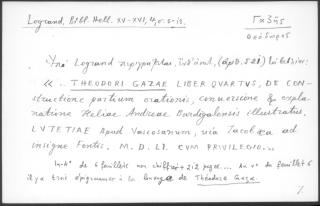 Legrand, Bibl. Hell. XV-XVI,
Γαζῆς
Θεόδωρος
Ὑπὸ Legrand περιγράφεται,
« .. THEODORI GAZAE LIBER QUARTVS, DE CON-
structione partium orationis, conuersione & expla-
natione Heliae Andreae Burdigalensis illustratus,
LVTETIAE Apud Vascosanum, via Iacobæa ad
insigne Fontis. M. D. LI. CVM PRIVILEGIO...
In-4° de 6 feuillets non chiffrés + 212 pages... Au v° du feuillet 6
il y a trois épigrammes à la louange de Théodore Gaza.